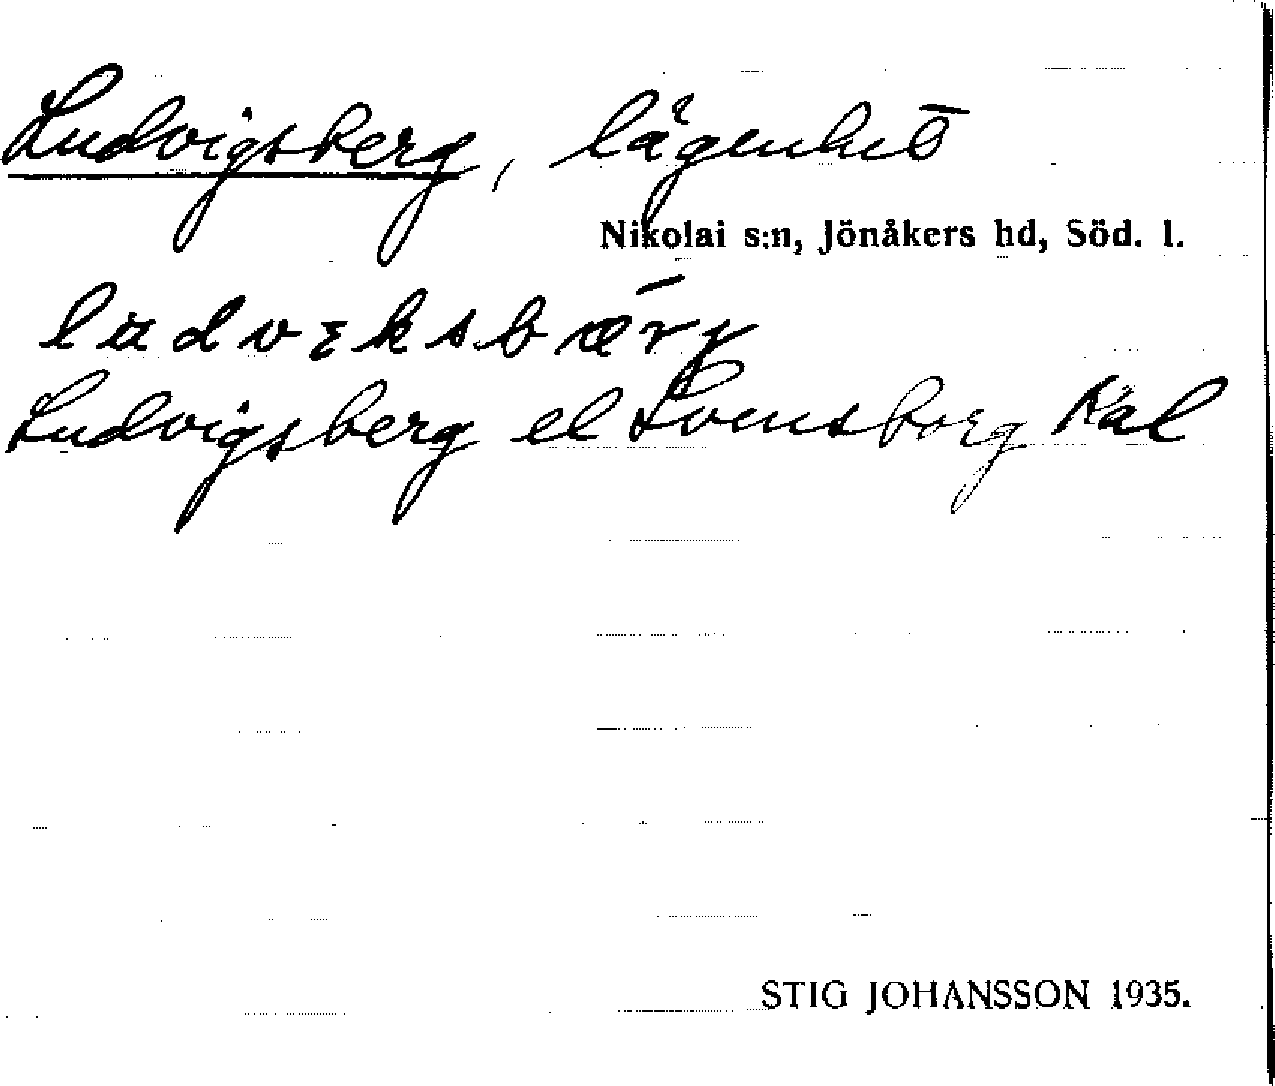 Ludvigsberg, lägenhet
Nikolai s:n, Jönåkers hd, Söd. l.
Ludvigsberg el Svensborg Räl
STIG JOHANSSON 1935.